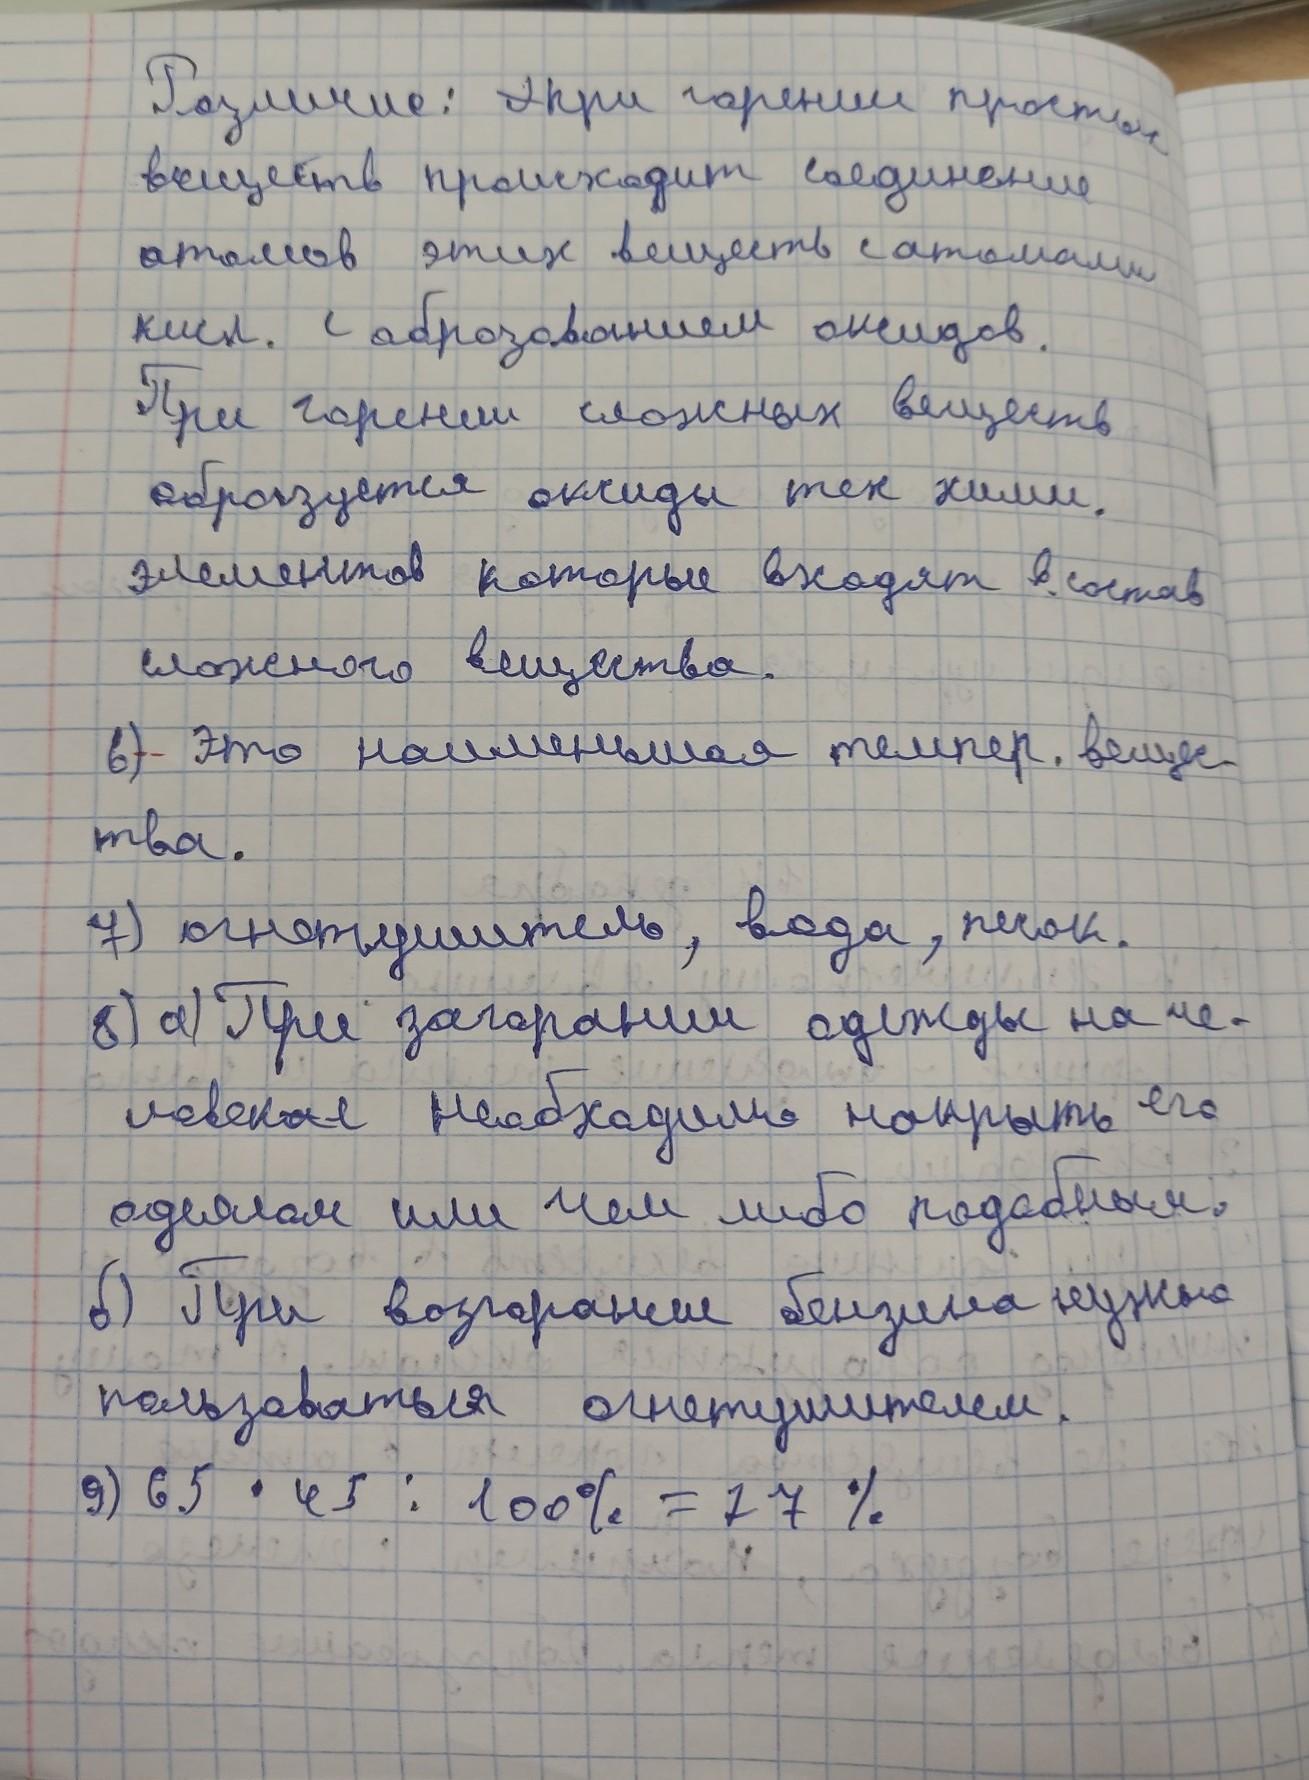 Различие: При горении простых
веществ происходит соединение
атомов этих веществ с атомами
кисл. с оброзованием оксидов.
При горении сложных веществ
оброзуется оксиды тех хими.
элементов которые входят в состав
сложного вещества.
6)- Это наименьшая темпер. вещес-
тва.
7) огнетушитель, вода, песок.
8) а) При загорании одежды на че-
ловеке необходимо накрыть его
одеялом или чем либо подобным.
б) При возгорании бензина нужно
пользоваться огнетушителем.
9) 65 · 45 : 100% = 27 %